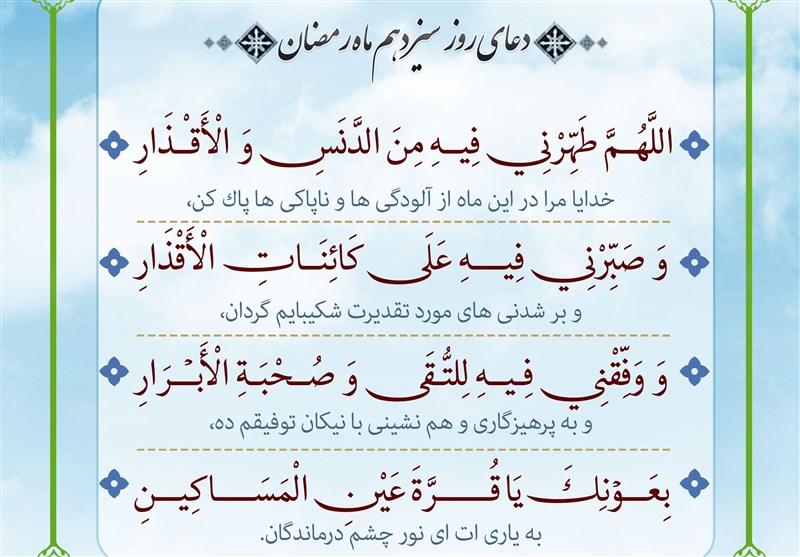 دعای روز سیزدهم ماه رمضان
اللَّهُمَّ طَهِّرْنِي فِيهِ مِنَ الدَّنَسِ وَ الْأَقْذَارِ
خدایا مرا در این ماه از آلودگی ها و ناپاکی ها پاك کن،
وَ صَبِّرْنِي فِيهِ عَلَى كَائِنَاتِ الْأَقْذَارِ
و بر شدنی های مورد تقدیرت شکیبایم گردان،
وَ وَفِّقْنِي فِيهِ لِلتُّقَى وَ صُحْبَةِ الْأَبْرَارِ
و به پرهیزگاری و هم نشینی با نیکان توفیقم ده،
بِعَوْنِكَ يَا قُرَّةَ عَيْنِ الْمَسَاكِينِ
به یاری ات ای نور چشم درماندگان.